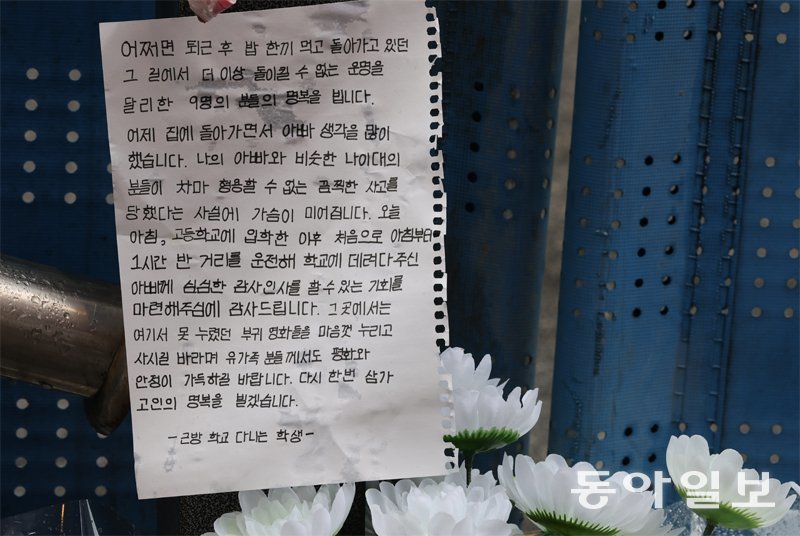 어쩌면 퇴근 후 밥 한끼 먹고 돌아가고 있던
그 길에서 더 이상 돌이킬 수 없는 운명을
달리한 9명의 분들의 명복을 빕니다.
어제 집에 돌아가면서 아빠 생각을 많이
했습니다. 나의 아빠와 비슷한 나이대의
분들이 차마 형용할 수 없는 끔찍한 사고를
당했다는 사실에 가슴이 미어집니다. 오늘
아침, 고등학교에 입학한 이후 처음으로 아침부터
1시간 반 거리를 운전해 학교에 데려다주신
아빠께 심심한 감사인사를 할 수 있는 기회를
마련해주심에 감사드립니다. 그곳에서는
여기서 못 누렸던 부귀 영화들을 마음껏 누리고
사시길 바라며 유가족 분들께서도 평화와
안정이 가득하길 바랍니다. 다시 한번 삼가
고인의 명복을 빌겠습니다.
- 근방 학교 다니는 학생 -
동아일보